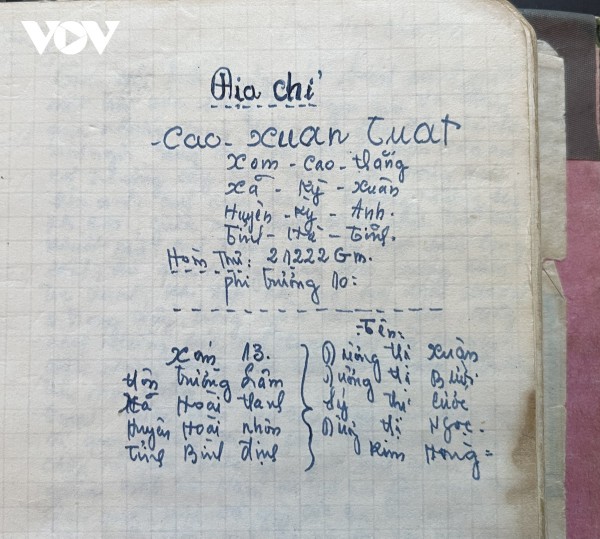 VOV
Địa chỉ
-Cao-Xuân Tuat
Xom-Cao-thắng
Xã-Kỳ-Xuân
Huyện-Kỳ-Anh.
Tỉnh-Hà-Tĩnh.
Hòm Thư: 21222 Gm.
phi trường 10:
-Tên:
Xóm 13.
thôn trường Lâm
Xã Hoài thanh
Huyện Hoài nhơn
Tỉnh Bình định
Dương thị Xuân
Dương thị
thị cước
thị Ngọc.
Kim Hồng=